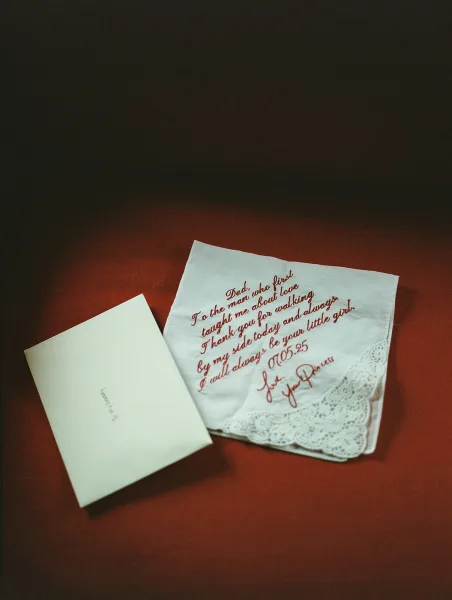 Dad,
To the man who first
taught me about love
Thank you for walking
by my side today and always
I will always be your little girl.
07.05.25
Love
Your Princess